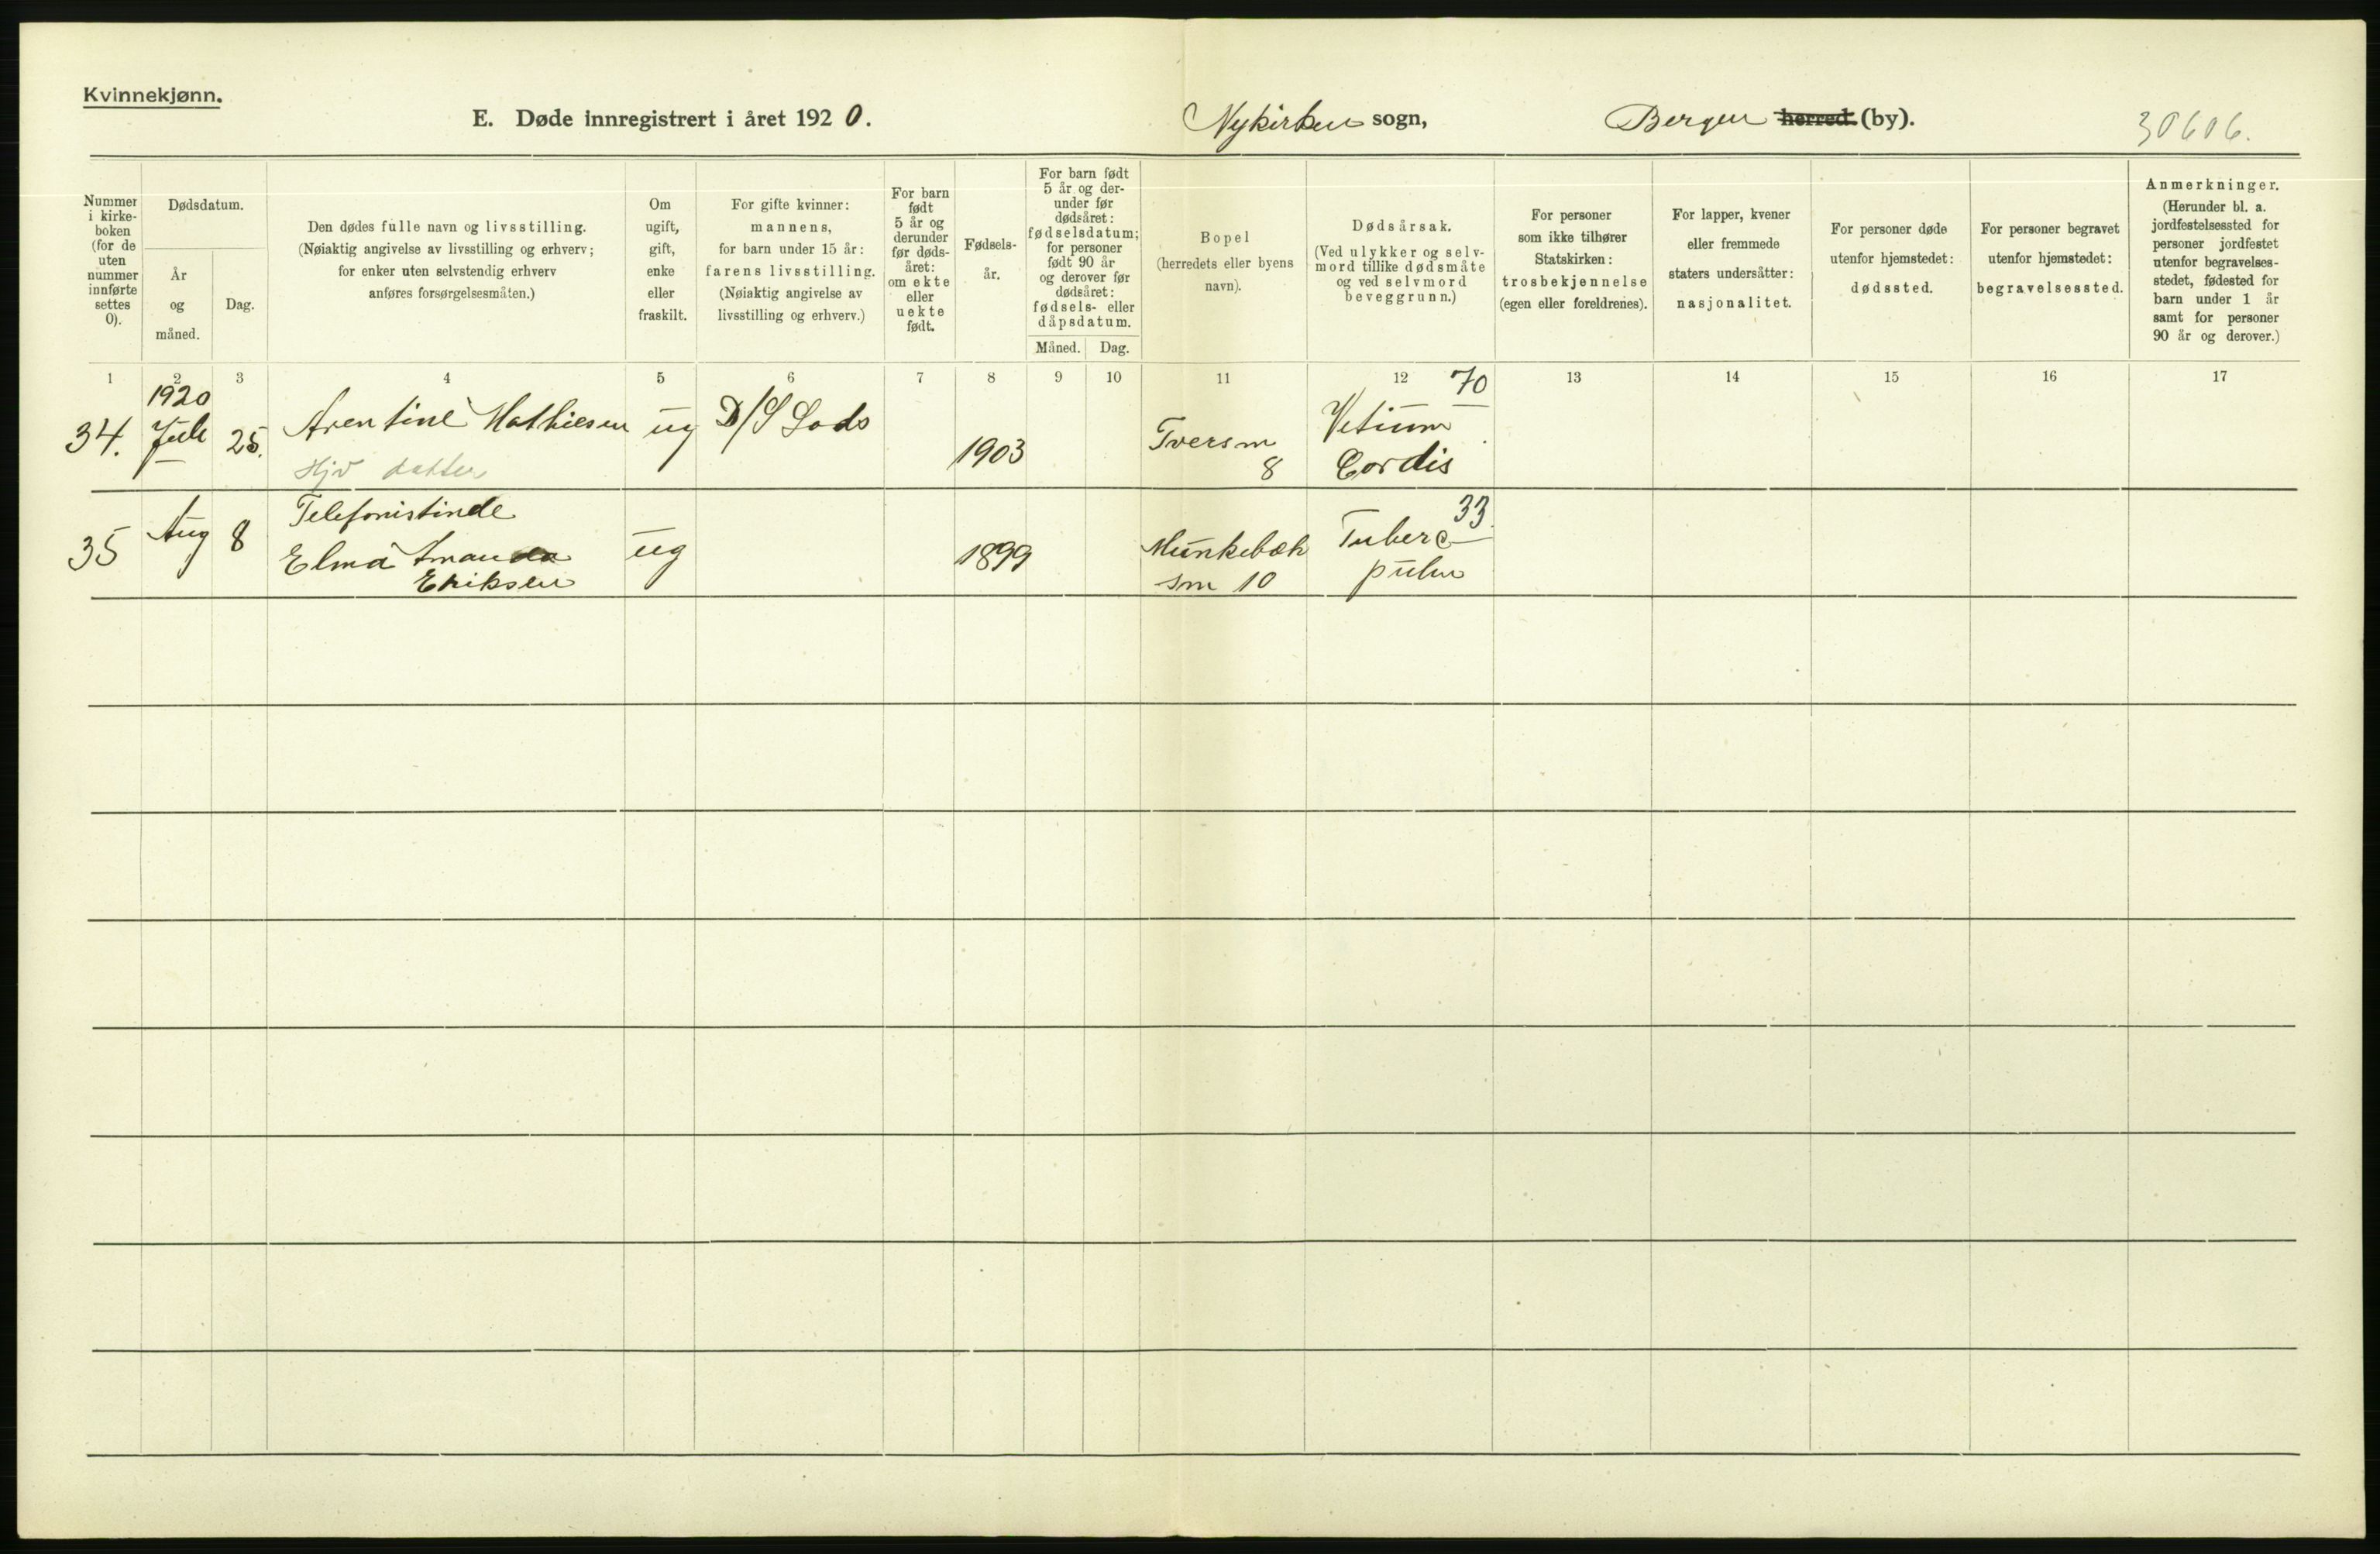 Kvinnekjønn.
E. Døde innregistrert i året 1920.
Nykirken sogn,
Bergen herred (by).
30606.
Nummer
i kirke-
boken
(for de
uten
nummer
innførte
settes
0).
Dødsdatum.
År
og
måned.
Dag.
Den dødes fulle navn og livsstilling.
(Nøiaktig angivelse av livsstilling og erhverv;
for enker uten selvstendig erhverv
anføres forsørgelsesmåten.)
Om
ugift,
gift,
enke
eller
fraskilt.
For gifte kvinner:
mannens,
for barn under 15 år:
farens livsstilling.
(Nøiaktig angivelse av
livsstilling og erhverv.)
For barn
født
5 år og
derunder
før døds-
året:
om ekte
eller
uekte
født.
Fødsels-
år.
For barn født
5 år og der-
under før
dødsåret:
fødselsdatum;
for personer
født 90 år
og derover før
dødsåret:
fødsels- eller
dåpsdatum.
Måned.
Dag.
Bopel
(herredets eller byens
navn).
Dødsårsak.
(Ved ulykker og selv-
mord tillike dødsmåte
og ved selvmord
beveggrunn.)
For personer
som ikke tilhører
Statskirken:
trosbekjennelse
(egen eller foreldrenes).
For lapper, kvener
eller fremmede
staters undersåtter:
nasjonalitet.
For personer døde
utenfor hjemstedet:
dødssted.
For personer begravet
utenfor hjemstedet:
begravelsessted.
Anmerkninger.
(Herunder bl. a.
jordfestelsessted for
personer jordfestet
utenfor begravelses-
stedet, fødested for
barn under 1 år
samt for personer
90 år og derover.)
1 2 3 4 5 6 7 8 9 10 11 12 13 14 15 16 17
1920
34. Juli 25. Arentine Mathiesen ug D/S Lods 1903 Tversm 8
Hjv datter
70
Vitium
Cordis
35 Aug 8
Telefonistinde
Elma Amanda
Eriksen
ug 1899
Munkebæk
sm 10
33
Tuberc
pulm